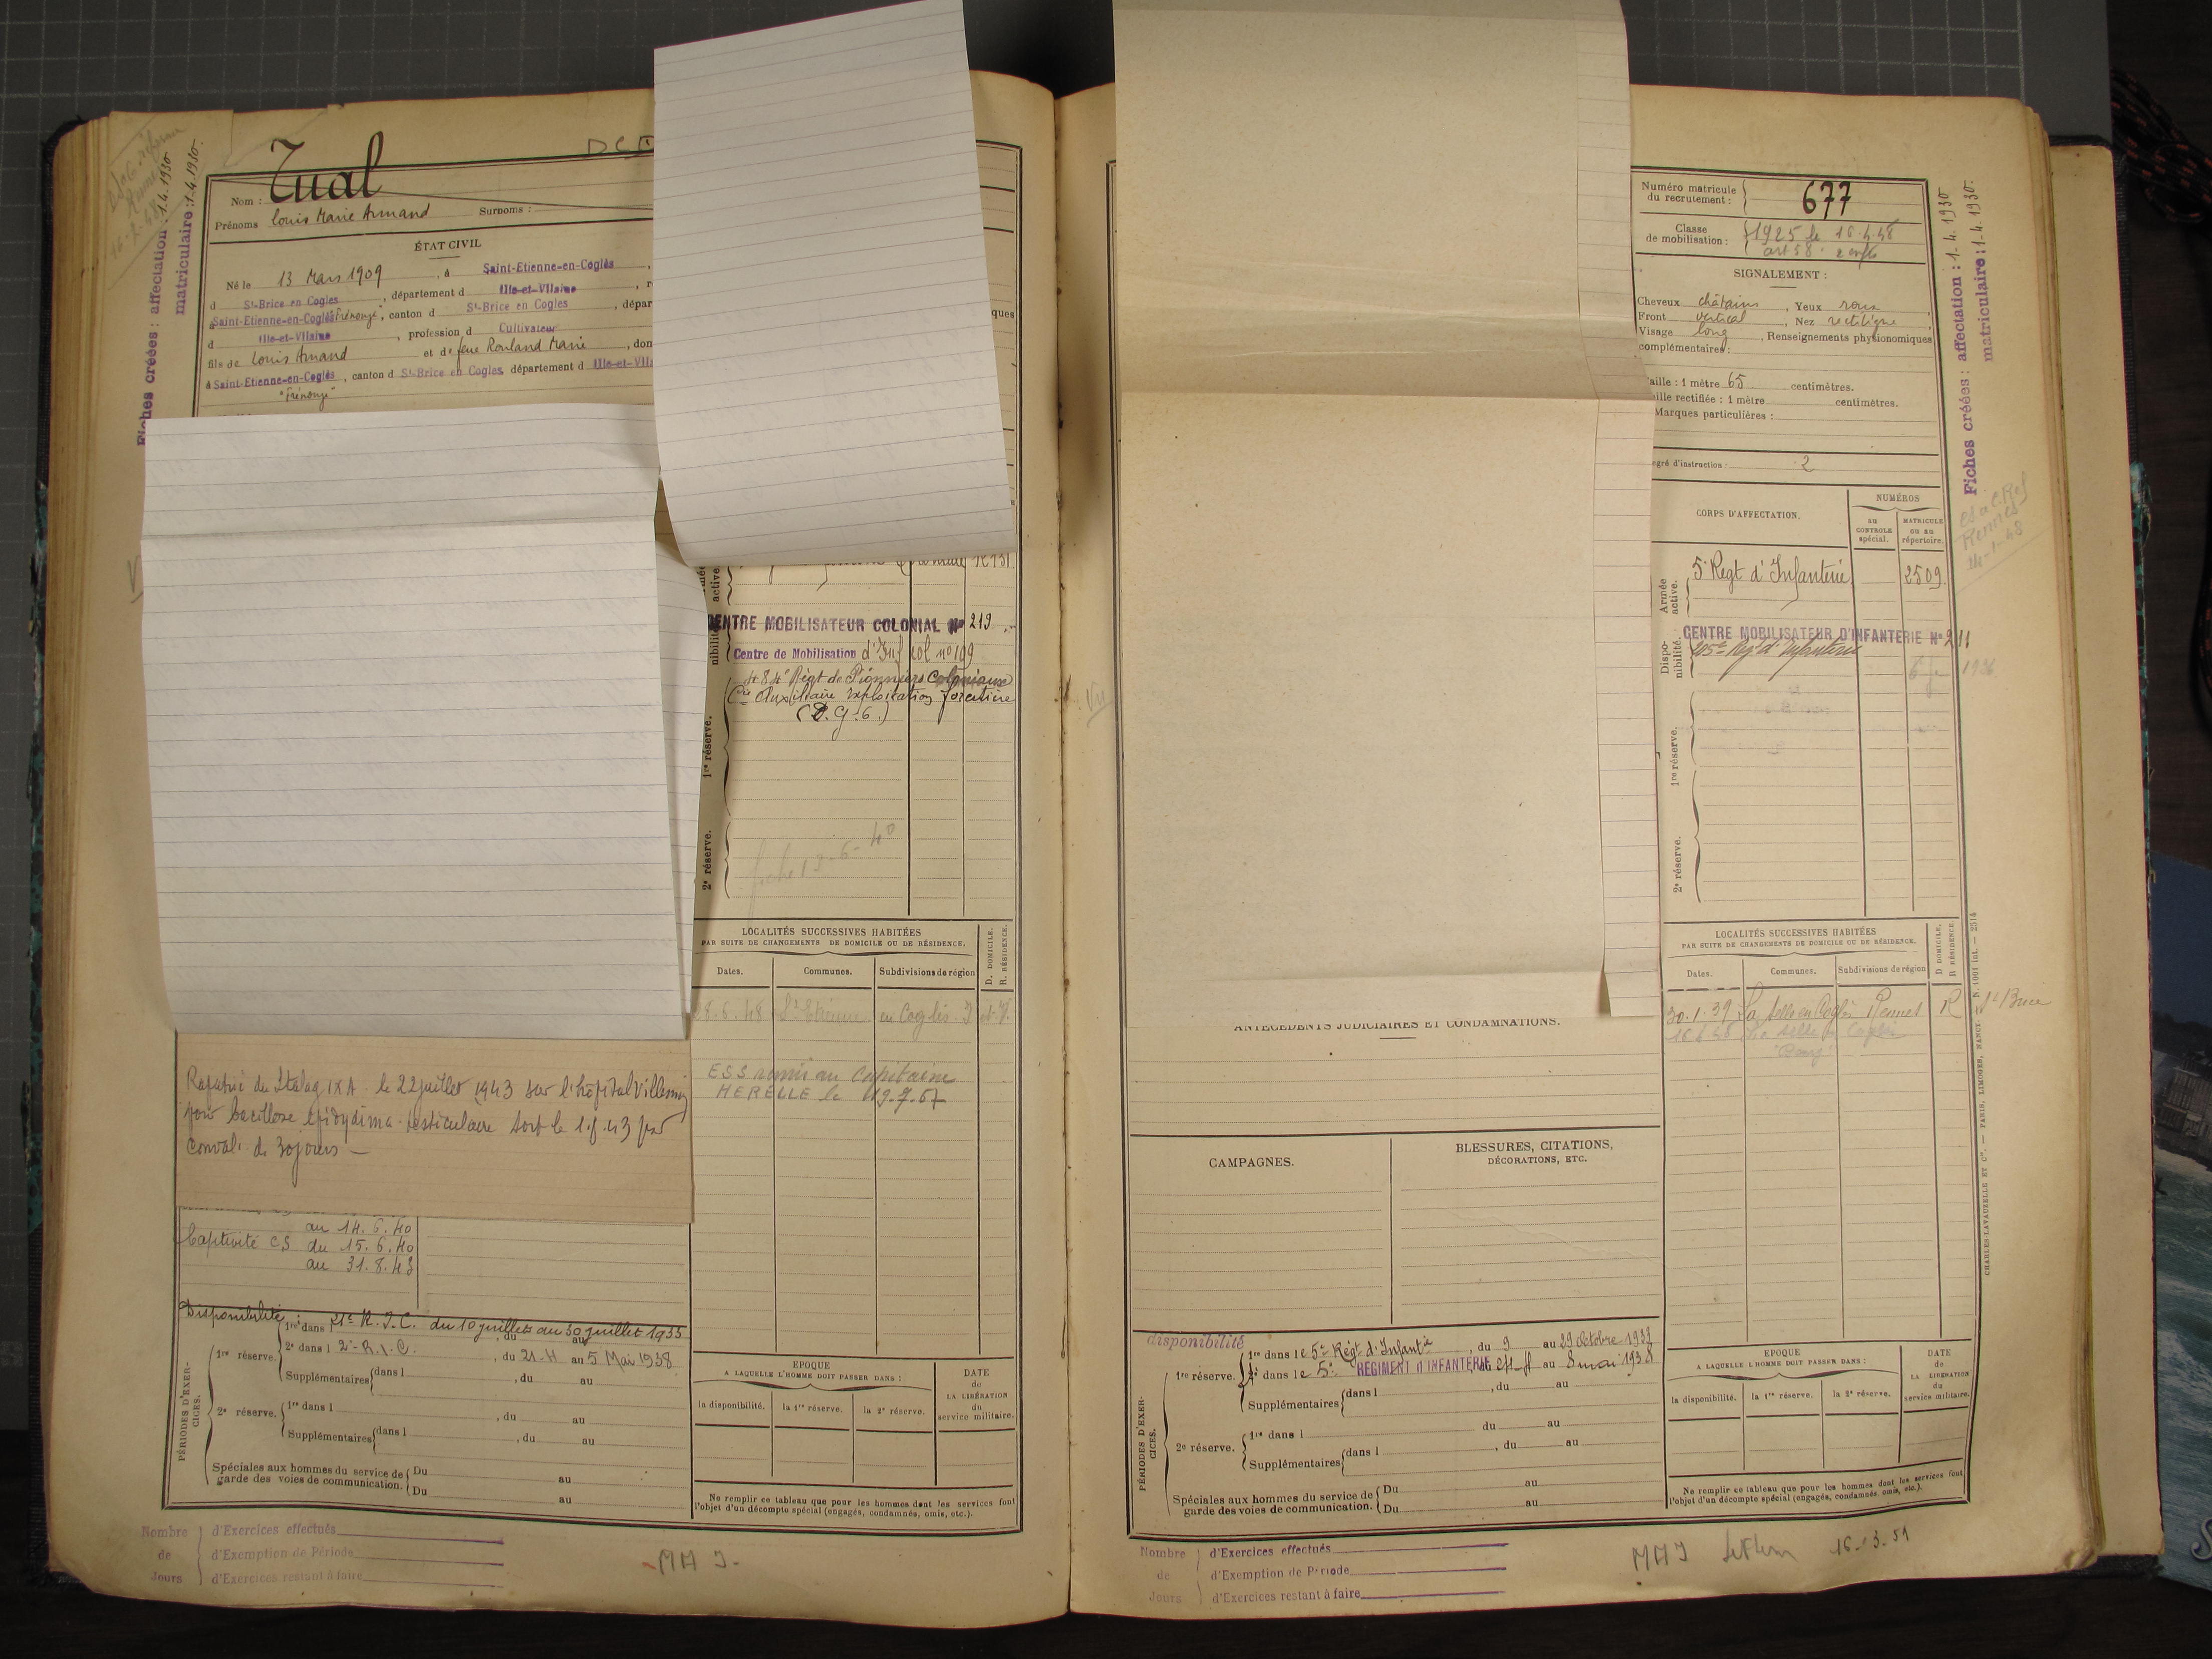 Tual
Nom :
Prénoms Louis Marie Armand Surnoms :
ÉTAT CIVIL
Né le 13 Mars 1909, à Saint-Etienne-en-Coglès,
d St-Brice en Cogles, département d Ille-et-Vilaine, r
à Saint-Etienne-en-Coglès, canton d St-Brice en Cogles, dépar
d Ille-et-Vilaine, profession d Cultivateur
fils de Louis Amand et de feue Rouland Marie, don
à Saint-Etienne-en-Coglès, canton d St-Brice en Cogles, département d Ille-et-Vila
Fiches créées : affectation : 1.4.1930
matriculaire : 1.4.1930.
active.
CENTRE MOBILISATEUR COLONIAL N° 219
Centre de Mobilisation d'Inf col n° 109
484e Régt de Pionniers Coloniaux
Cie Auxiliaire exploitation forestière
nibilité.
1re réserve.
2e réserve.
fiche 13-6-40
LOCALITÉS SUCCESSIVES HABITÉES
PAR SUITE DE CHANGEMENTS DE DOMICILE OU DE RÉSIDENCE.
D. DOMICILE.
R. RÉSIDENCE.
Dates. Communes. Subdivisions de région
8.6.48 St Etienne en Coglès. I et V.
ESS remis au Capitaine
HERELLE le 19.7.67
Rapatrié du Stalag IXA le 22 juillet 1943 sur l'hôpital Villemin
pour bacillose épidydimo-testiculaire sort le 1.8.43 par
Conval. de 30 jours —
au 14.6.40
Captivité CS du 15.6.40
au 31.8.43
Disponibilité :
1re dans 21e R.I.C. du 10 juillet au 30 juillet 1935
1re réserve. 2e dans l 2e R.I.C., du 21-4 au 5 Mai 1938
Supplémentaires dans l , du au
2e réserve. 1re dans l , du au
Supplémentaires dans l , du au
PÉRIODES D'EXER-
CICES.
Spéciales aux hommes du service de
garde des voies de communication. Du au
Du au
EPOQUE
A LAQUELLE L'HOMME DOIT PASSER DANS :
DATE
de
LA LIBÉRATION
du
service militaire.
la disponibilité. la 1re réserve. la 2e réserve.
Ne remplir ce tableau que pour les hommes dont les services font
l'objet d'un décompte spécial (engagés, condamnés, omis, etc.).
Nombre
de
Jours
d'Exercices effectués
d'Exemption de Période
d'Exercices restant à faire
MH J
Numéro matricule
du recrutement : 677
Classe
de mobilisation : 1925 le 16.4.48
art 58 2 enfts
SIGNALEMENT :
Cheveux châtains, Yeux roux
Front vertical, Nez rectiligne
Visage long, Renseignements physionomiques
complémentaires :
aille : 1 mètre 65 centimètres.
aille rectifiée : 1 mètre centimètres.
Marques particulières :
egré d'instruction : 2
CORPS D'AFFECTATION.
NUMÉROS
au
CONTROLE
spécial.
MATRICULE
ou au
répertoire.
Armée
active.
5e Régt d'Infanterie 2509
Dispo-
nibilité.
CENTRE MOBILISATEUR D'INFANTERIE N° 211
1936
1re réserve.
2e réserve.
Fiches créées : affectation : 1.4.1930
matriculaire : 1.4.1930.
LOCALITÉS SUCCESSIVES HABITÉES
PAR SUITE DE CHANGEMENTS DE DOMICILE OU DE RÉSIDENCE.
D DOMICILE.
R RÉSIDENCE
Dates. Communes. Subdivisions de région
30.1.39 La Selle en Coglès Rennes R St Brice
La Selle en Coglès
"Bourg"
ANTÉCÉDENTS JUDICIAIRES ET CONDAMNATIONS.
CAMPAGNES.
BLESSURES, CITATIONS,
DÉCORATIONS, ETC.
disponibilité
1re dans le 5e Régt d'Infantie, du 9 au 29 Octobre 1933
1re réserve. 2e dans le 5e REGIMENT D'INFANTERIE au 8 mai 1938
Supplémentaires dans l , du au
du au
2e réserve. 1re dans l
Supplémentaires dans l , du au
PÉRIODES D'EXER-
CICES.
Spéciales aux hommes du service de
garde des voies de communication. Du au
Du au
EPOQUE
A LAQUELLE L'HOMME DOIT PASSER DANS :
DATE
de
LA LIBÉRATION
du
service militaire.
la disponibilité. la 1re réserve. la 2e réserve.
Ne remplir ce tableau que pour les hommes dont les services font
l'objet d'un décompte spécial (engagés, condamnés, omis, etc.).
CHARLES-LAVAUZELLE ET Cie. — PARIS, LIMOGES, NANCY.
Nombre
de
Jours
d'Exercices effectués
d'Exemption de Période
d'Exercices restant à faire
MHJ 16-3-51